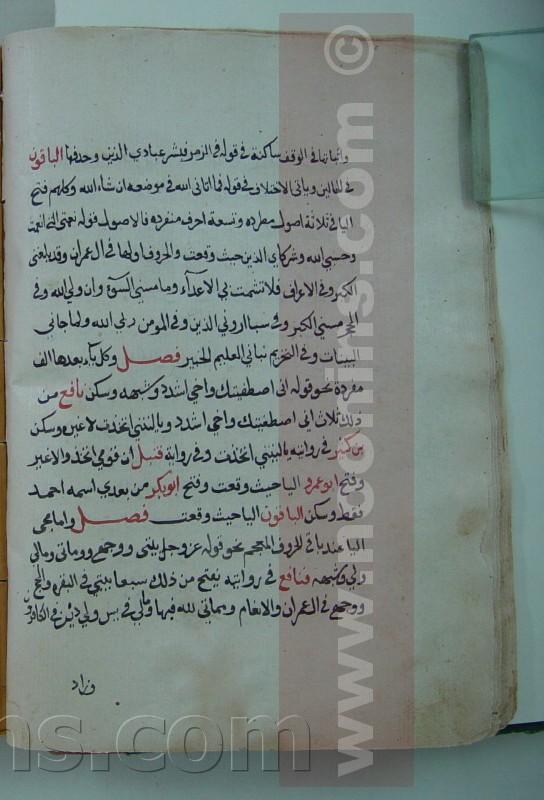 واثباتها في الوقف ساكنة في قوله في الزمر فبشر عبادي الذين وحذفها الباقون
في الحالين وياتي الاختلاف في قوله فما اتاني الله في موضعه ان شاء الله وكلهم فتح
اليا في ثلاثة اصول مطرده وتسعة احرف منفرده فالاصول قوله نعمتي التي انعمت
وحسبي الله وشركاي الذين حيث وقعت والحروف اولها في ال عمران وقد بلغني
الكبر وفي الاعراف فلا تشمت بي الاعداء وما مسني السوء وان ولي الله وفي
الحجر مسني الكبر وفي سبا اروني الذين وفي المومن ربي الله ولما جاني
البينات وفي التحريم نباني العليم الخبير فصل وكل ياء بعدها الف
مفردة نحو قوله اني اصطفيتك واخي اشدد وشبهه وسكن نافع من
ذلك ثلاث اني اصطفيتك واخي اشدد ويا ليتني اتخذت لا غير وسكن
بن كثير في روايته يا ليتني اتخذت وفي رواية قنبل ان قومي اتخذوا لا غير
وفتح ابو عمرو اليا حيث وقعت وفتح ابو بكر من بعدي اسمه احمد
فقط وسكن الباقون اليا حيث وقعت فصل واما مجي
اليا عند باقي الحروف المعجم نحو قوله عز وجل بيتي ووجهي ومماتي ومالي
ولي وشبهه فنافع في روايته يفتح من ذلك سبعا بيتي في البقره والحج
ووجهي في ال عمران والانعام ومماتي لله فيها ومالي في يس ولي دين في الكافرون
وزاد
www.ncoins.com ©
ns.com